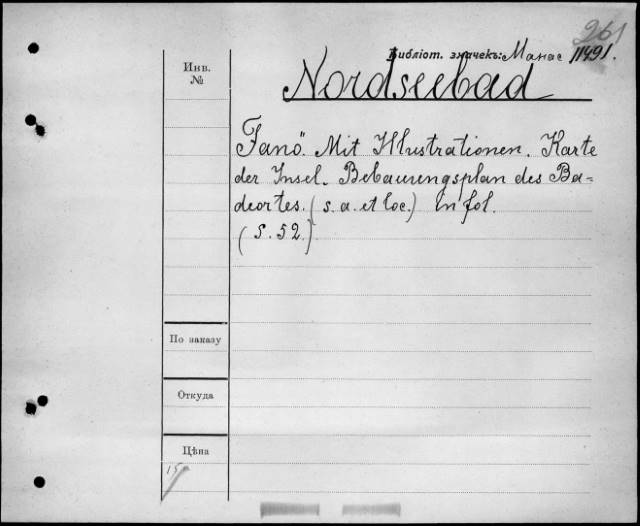 261
Библіот. значекъ: Манас 11491.
Инв.
№
Nordseebad
Fanö. Mit Illustrationen. Karte
der Insel. Bebauungsplan des Ba=
deortes. (s. a. et loc.) In fol.
(S. 52.)
По заказу
Откуда
Цѣна